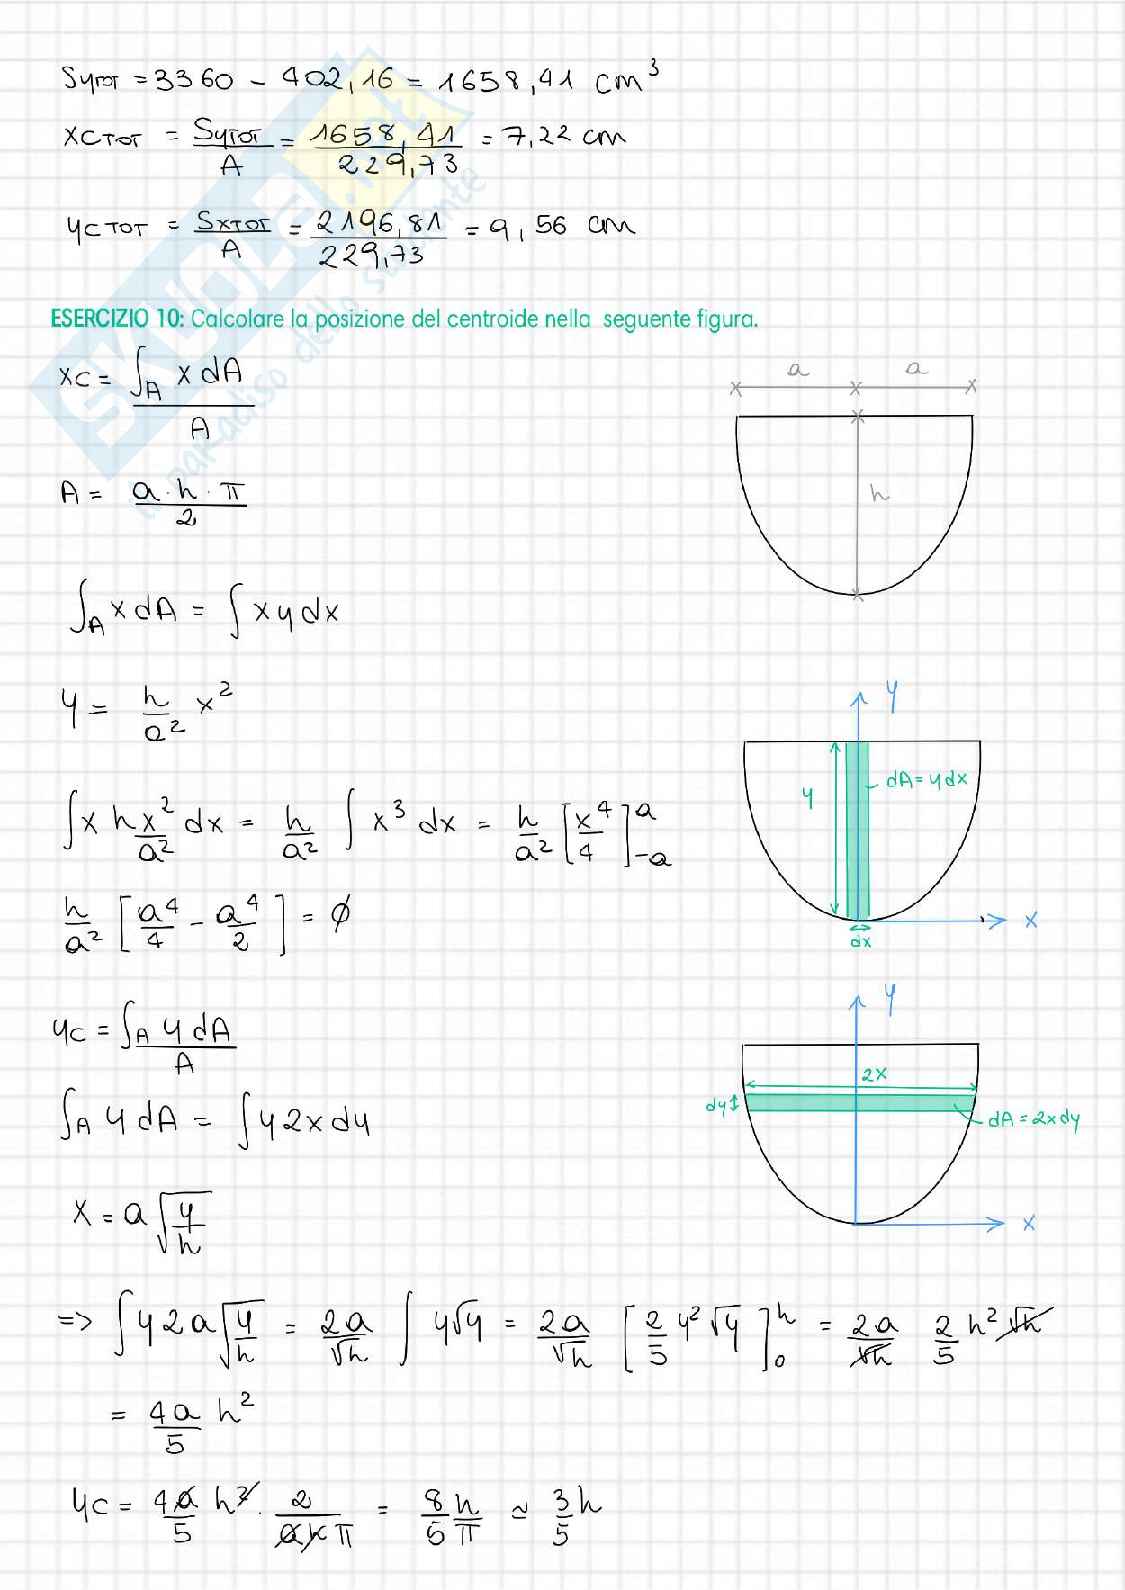 Sytot = 3360 - 402,16 = 1658,41 cm³
xctot = Sytot/A = 1658,41/229,73 = 7,22 cm
yctot = Sxtot/A = 2196,81/229,73 = 9,56 cm
ESERCIZIO 10: Calcolare la posizione del centroide nella seguente figura.
xc = ∫A x dA / A
a a
A = a·h·π / 2
h
∫A x dA = ∫ x y dx
y = h/a² x²
y
dA = y dx
y
∫ x hx²/a² dx = h/a² ∫ x³ dx = h/a² [x⁴/4]ᵃ₋ₐ
h/a² [a⁴/4 - a⁴/2] = ϕ
x
dx
yc = ∫A y dA / A
y
2x
dy
dA = 2x dy
∫A y dA = ∫ y 2x dy
x = a √(y/h)
x
=> ∫ y 2a √(y/h) = 2a/√h ∫ y√y = 2a/√h [2/5 y² √y]ʰ₀ = 2a/√h 2/5 h² √h
= 4a/5 h²
yc = 4a/5 h² · 2/(a h π) = 8/5 h/π ≃ 3/5 h
SKUOLA.net
il paradiso dello studente